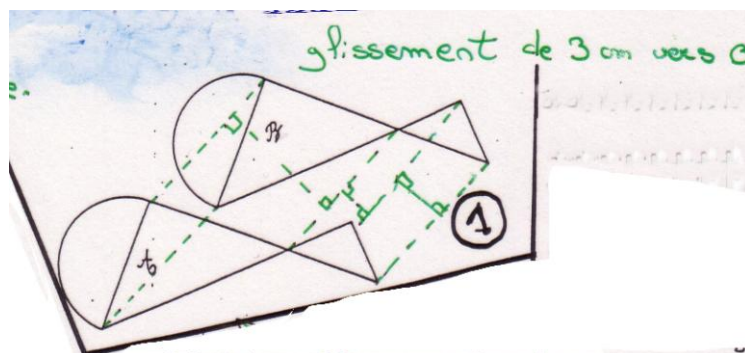 glissement de 3 cm vers
e.
B
A
1